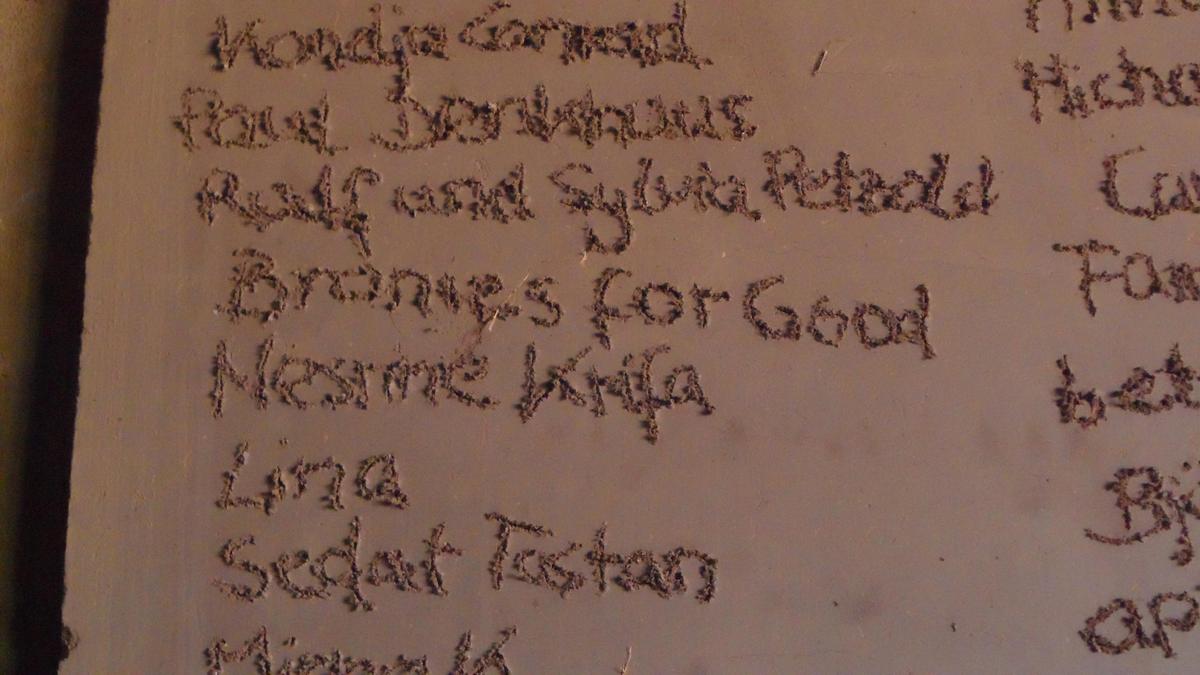 Kondja Conrad
Paul Benkhuus
Ralf und Sylvia Petzold
Branies for Good
Nesrine Krifa
Lina
Sedat Tastan
Miema K
Micha
Ca
Fam
bet
Bji
ap